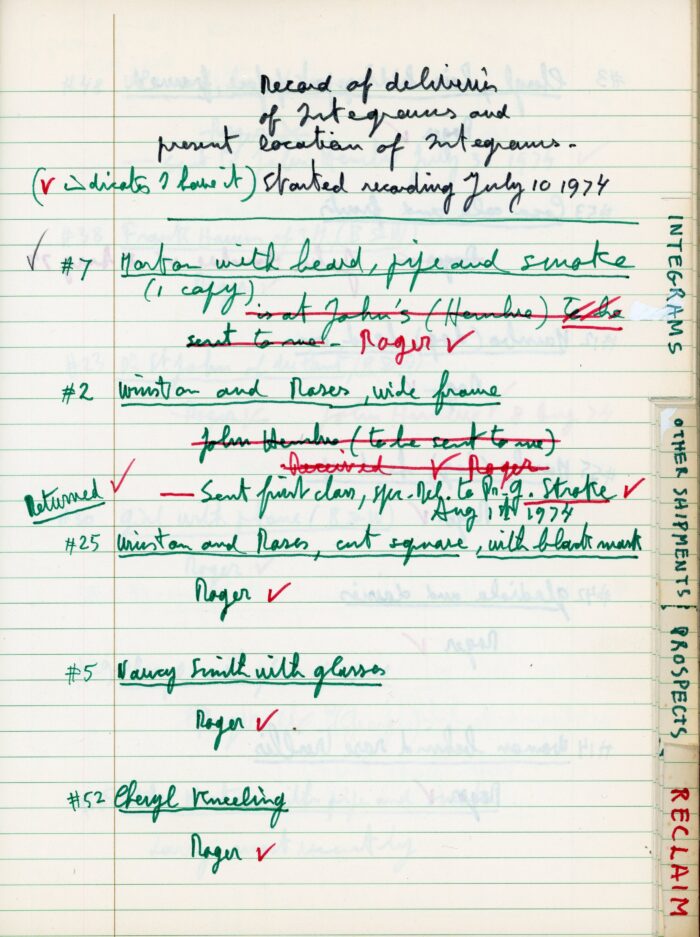 Record of deliveries
of Integrams and
present location of Integrams.
(✓ indicates I have it) Started recording July 10 1974
✓ #7 Morton with beard, pipe and smoke
(1 copy)
is at John's (Hembre) to be
sent to me. Roger ✓
#2 Winston and Roses, wide frame
John Hembre (to be sent to me)
Received ✓ Roger
Returned ✓
— Sent first class, spe. Del. to Dr. g. Stroke ✓
Aug 1st 1974
#25 Winston and Roses, cut square, with black mark
Roger ✓
#5 Nancy Smith with glasses
Roger ✓
#52 Cheryl Kneeling
Roger ✓
INTEGRAMS
OTHER SHIPMENTS
PROSPECTS
RECLAIM